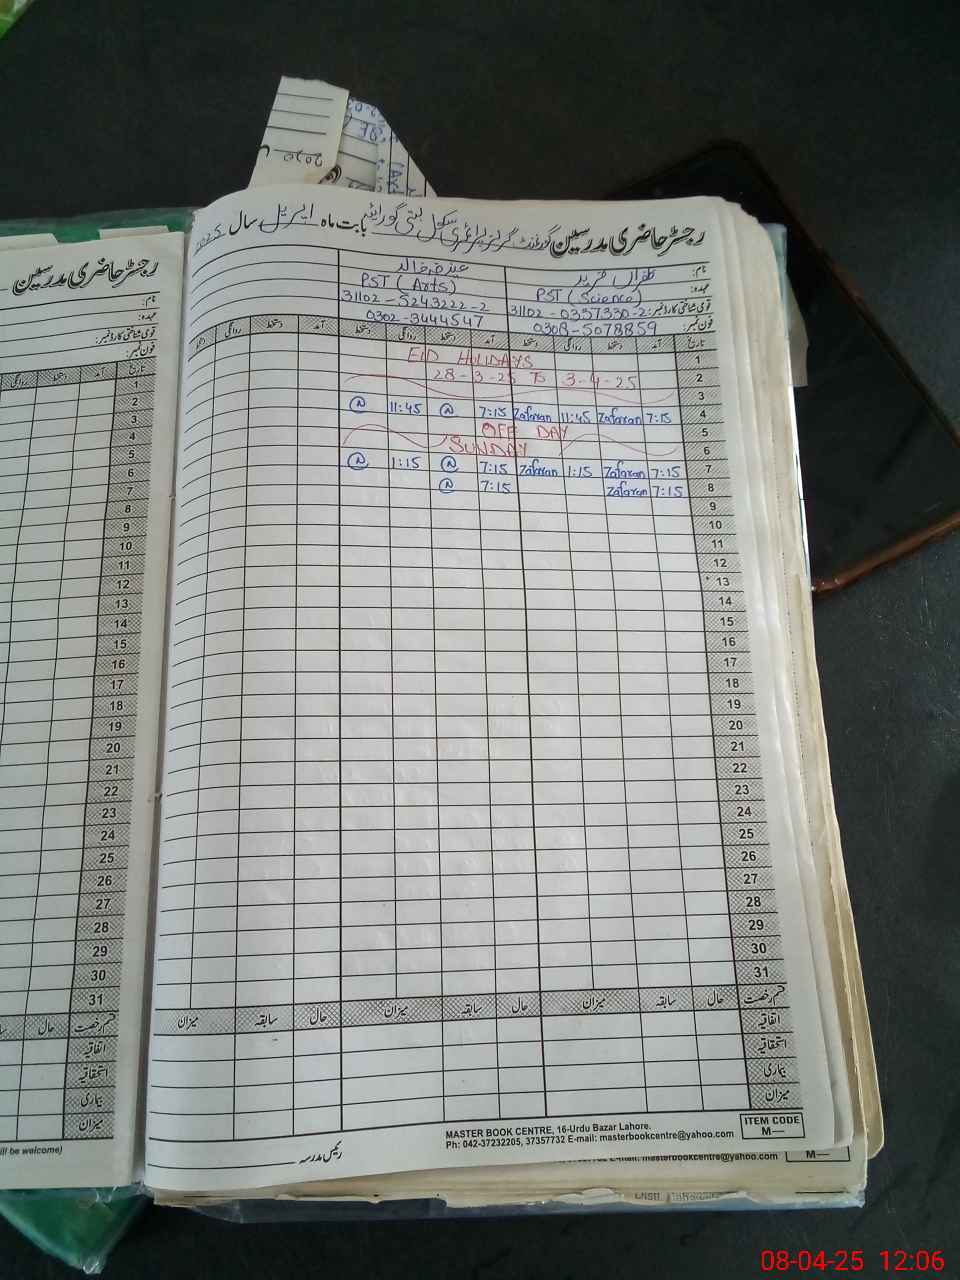 رجسٹر حاضری مدرسین گورنمنٹ گرلز پرائمری سکول بستی گورائیہ بابت ماہ اپریل سال 2025
نام: ظفراں فرید خالد
عہدہ: PST (Science) PST (Arts)
قومی شناختی کارڈ نمبر: 31102-0357330-2 31102-5243222-2
فون نمبر: 0308-5078859 0302-3444547
تاریخ آمد دستخط روانگی دستخط آمد دستخط روانگی دستخط آمد دستخط روانگی دستخط
1 EID HOLIDAYS
2 28-3-25 To 3-4-25
3
4 7:15 Zafaran 11:45 Zafaran 7:15 11:45
5 OFF DAY
6 SUNDAY
7 7:15 Zafaran 1:15 Zafaran 7:15 1:15
8 7:15 Zafaran 7:15
9
10
11
12
13
14
15
16
17
18
19
20
21
22
23
24
25
26
27
28
29
30
31
قسم رخصت حال سابقہ میزان حال سابقہ میزان حال سابقہ میزان
اتفاقیہ
استحقاقیہ
بیماری
میزان
MASTER BOOK CENTRE, 16-Urdu Bazar Lahore.
Ph: 042-37232205, 37357732 E-mail: masterbookcentre@yahoo.com
ITEM CODE
M—
رئیس مدرسہ
E-mail: masterbookcentre@yahoo.com
M—
رجسٹر حاضری مدرسین
نام:
عہدہ:
قومی شناختی کارڈ نمبر:
فون نمبر:
تاریخ آمد دستخط روانگی
1
2
3
4
5
6
7
8
9
10
11
12
13
14
15
16
17
18
19
20
21
22
23
24
25
26
27
28
29
30
31
قسم رخصت حال
اتفاقیہ
استحقاقیہ
بیماری
میزان
ill be welcome)
08-04-25 12:06